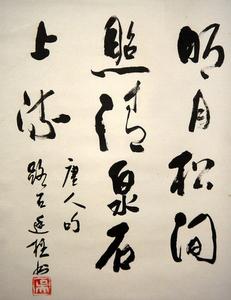 明月松间
照清泉石
上流
唐人句